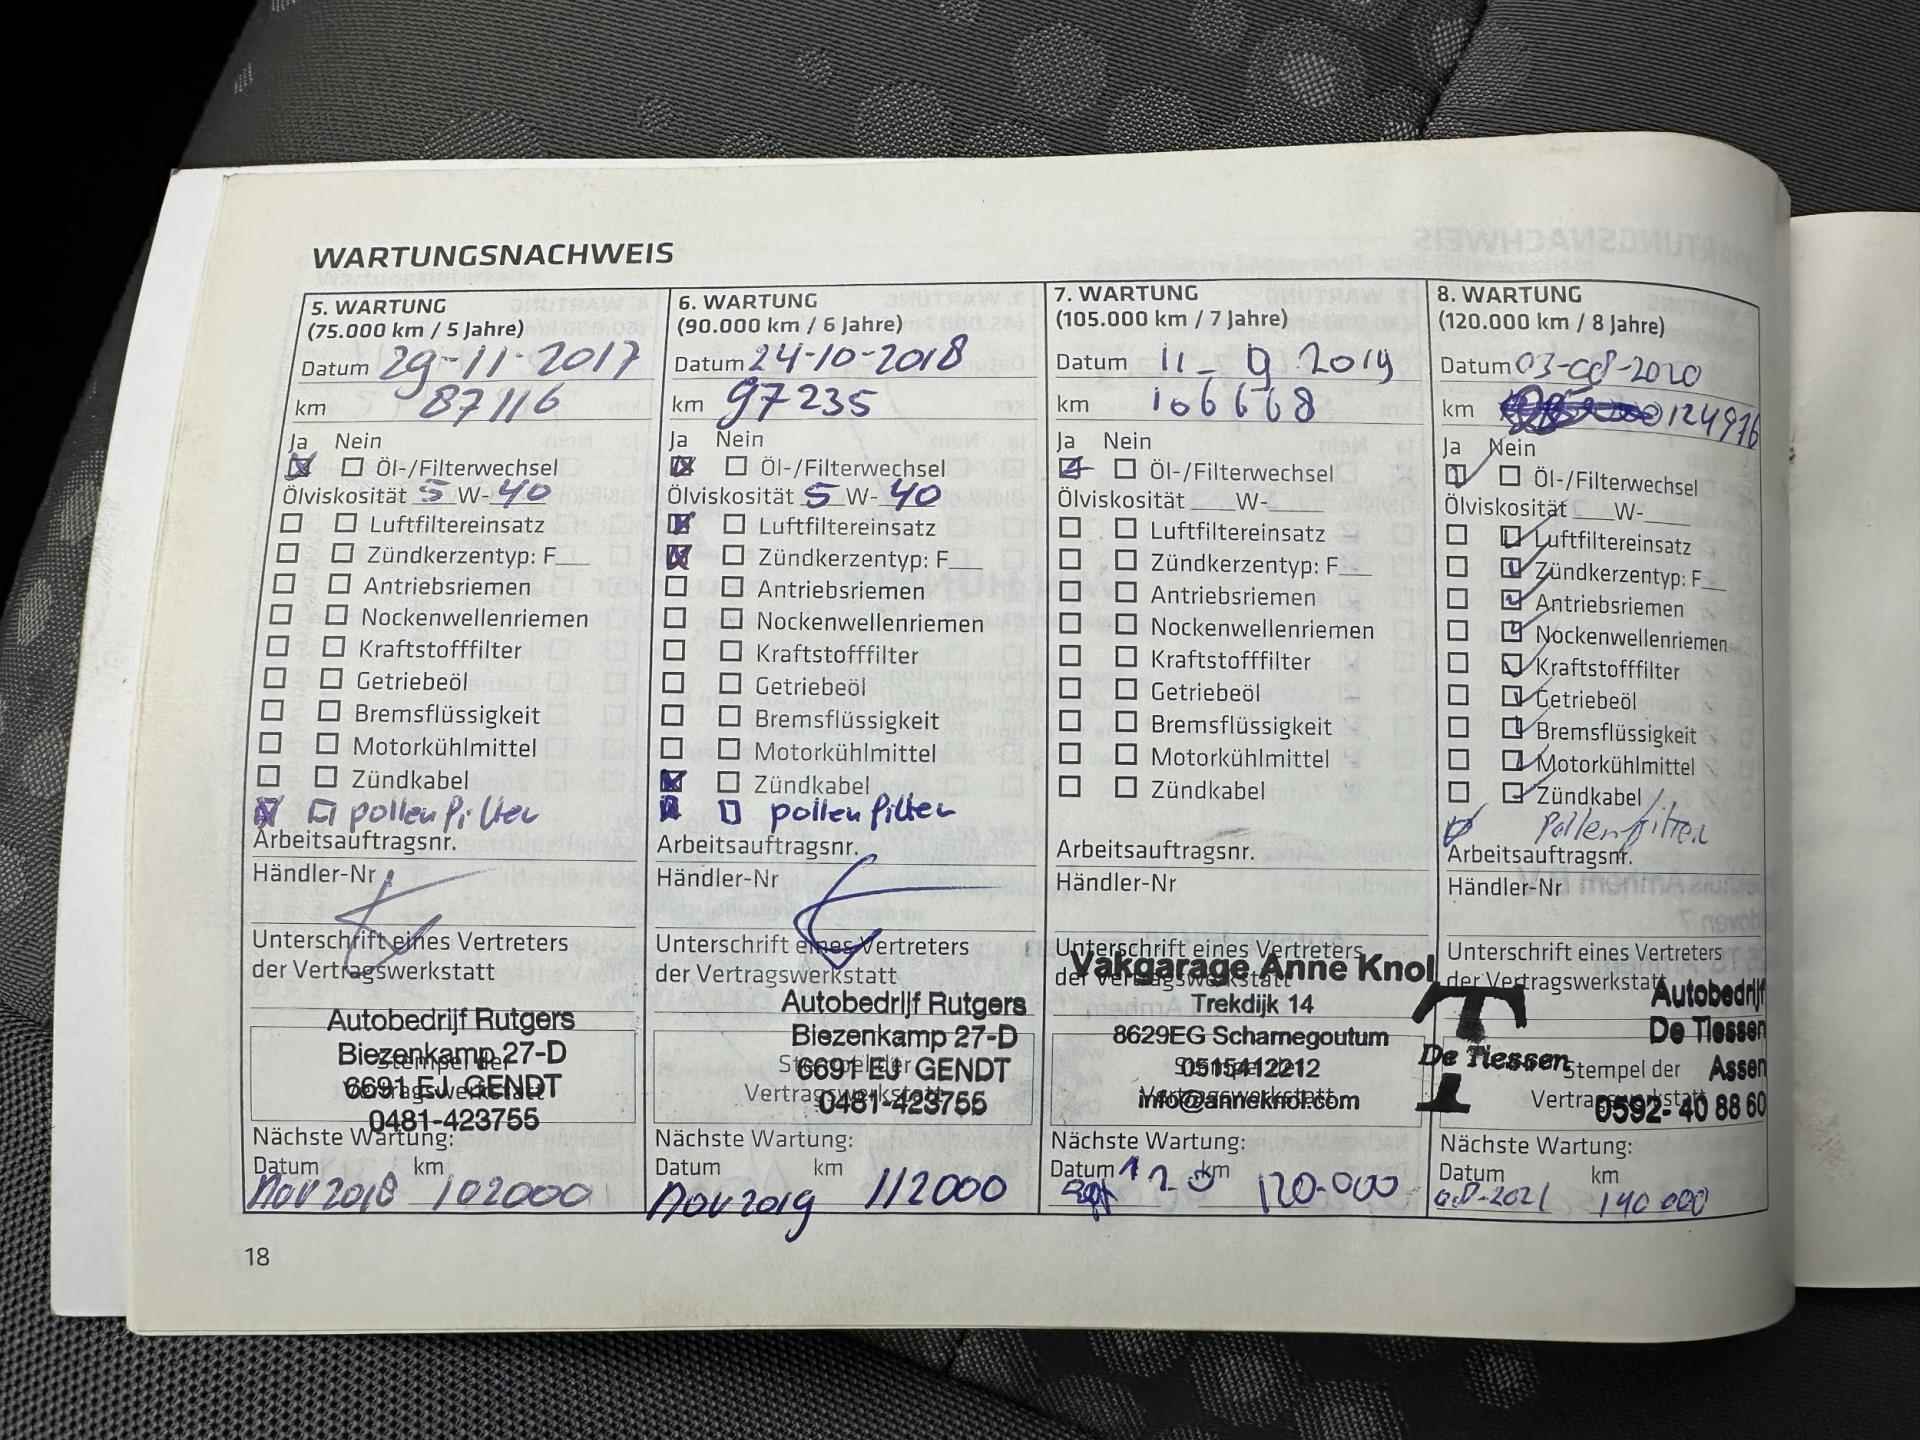 WARTUNGSNACHWEIS
5. WARTUNG
(75.000 km / 5 Jahre)
Datum 29-11-2017
km 87116
Ja Nein
Öl-/Filterwechsel
Ölviskosität 5 W- 40
Luftfiltereinsatz
Zündkerzentyp: F
Antriebsriemen
Nockenwellenriemen
Kraftstofffilter
Getriebeöl
Bremsflüssigkeit
Motorkühlmittel
Zündkabel
pollenfilter
Arbeitsauftragsnr.
Händler-Nr
Unterschrift eines Vertreters
der Vertragswerkstatt
Autobedrijf Rutgers
Biezenkamp 27-D
Stempel der
6691 EJ GENDT
Vertragswerkstatt
0481-423755
Nächste Wartung:
Datum km
Nov 2018 102000
6. WARTUNG
(90.000 km / 6 Jahre)
Datum 24-10-2018
km 97235
Ja Nein
Öl-/Filterwechsel
Ölviskosität 5 W- 40
Luftfiltereinsatz
Zündkerzentyp: F
Antriebsriemen
Nockenwellenriemen
Kraftstofffilter
Getriebeöl
Bremsflüssigkeit
Motorkühlmittel
Zündkabel
pollenfilter
Arbeitsauftragsnr.
Händler-Nr
Unterschrift eines Vertreters
der Vertragswerkstatt
Autobedrijf Rutgers
Biezenkamp 27-D
Stempel der
6691 EJ GENDT
Vertragswerkstatt
0481-423755
Nächste Wartung:
Datum km
Nov 2019 112000
7. WARTUNG
(105.000 km / 7 Jahre)
Datum 11-9 2019
km 106668
Ja Nein
Öl-/Filterwechsel
Ölviskosität W-
Luftfiltereinsatz
Zündkerzentyp: F
Antriebsriemen
Nockenwellenriemen
Kraftstofffilter
Getriebeöl
Bremsflüssigkeit
Motorkühlmittel
Zündkabel
Arbeitsauftragsnr.
Händler-Nr
Unterschrift eines Vertreters
der Vertragswerkstatt
Vakgarage Anne Knol
Trekdijk 14
8629EG Scharnegoutum
Stempel der
0515412212
Vertragswerkstatt
info@anneknol.com
Nächste Wartung:
Datum km
120.000
8. WARTUNG
(120.000 km / 8 Jahre)
Datum 03-08-2020
km 124976
Ja Nein
Öl-/Filterwechsel
Ölviskosität W-
Luftfiltereinsatz
Zündkerzentyp: F
Antriebsriemen
Nockenwellenriemen
Kraftstofffilter
Getriebeöl
Bremsflüssigkeit
Motorkühlmittel
Zündkabel
Pollenfilter
Arbeitsauftragsnr.
Händler-Nr
Unterschrift eines Vertreters
der Vertragswerkstatt
T
De Tiessen
Autobedrijf
De Tiessen
Stempel der
Assen
Vertragswerkstatt
0592- 40 88 60
Nächste Wartung:
Datum km
2021 140 000
18